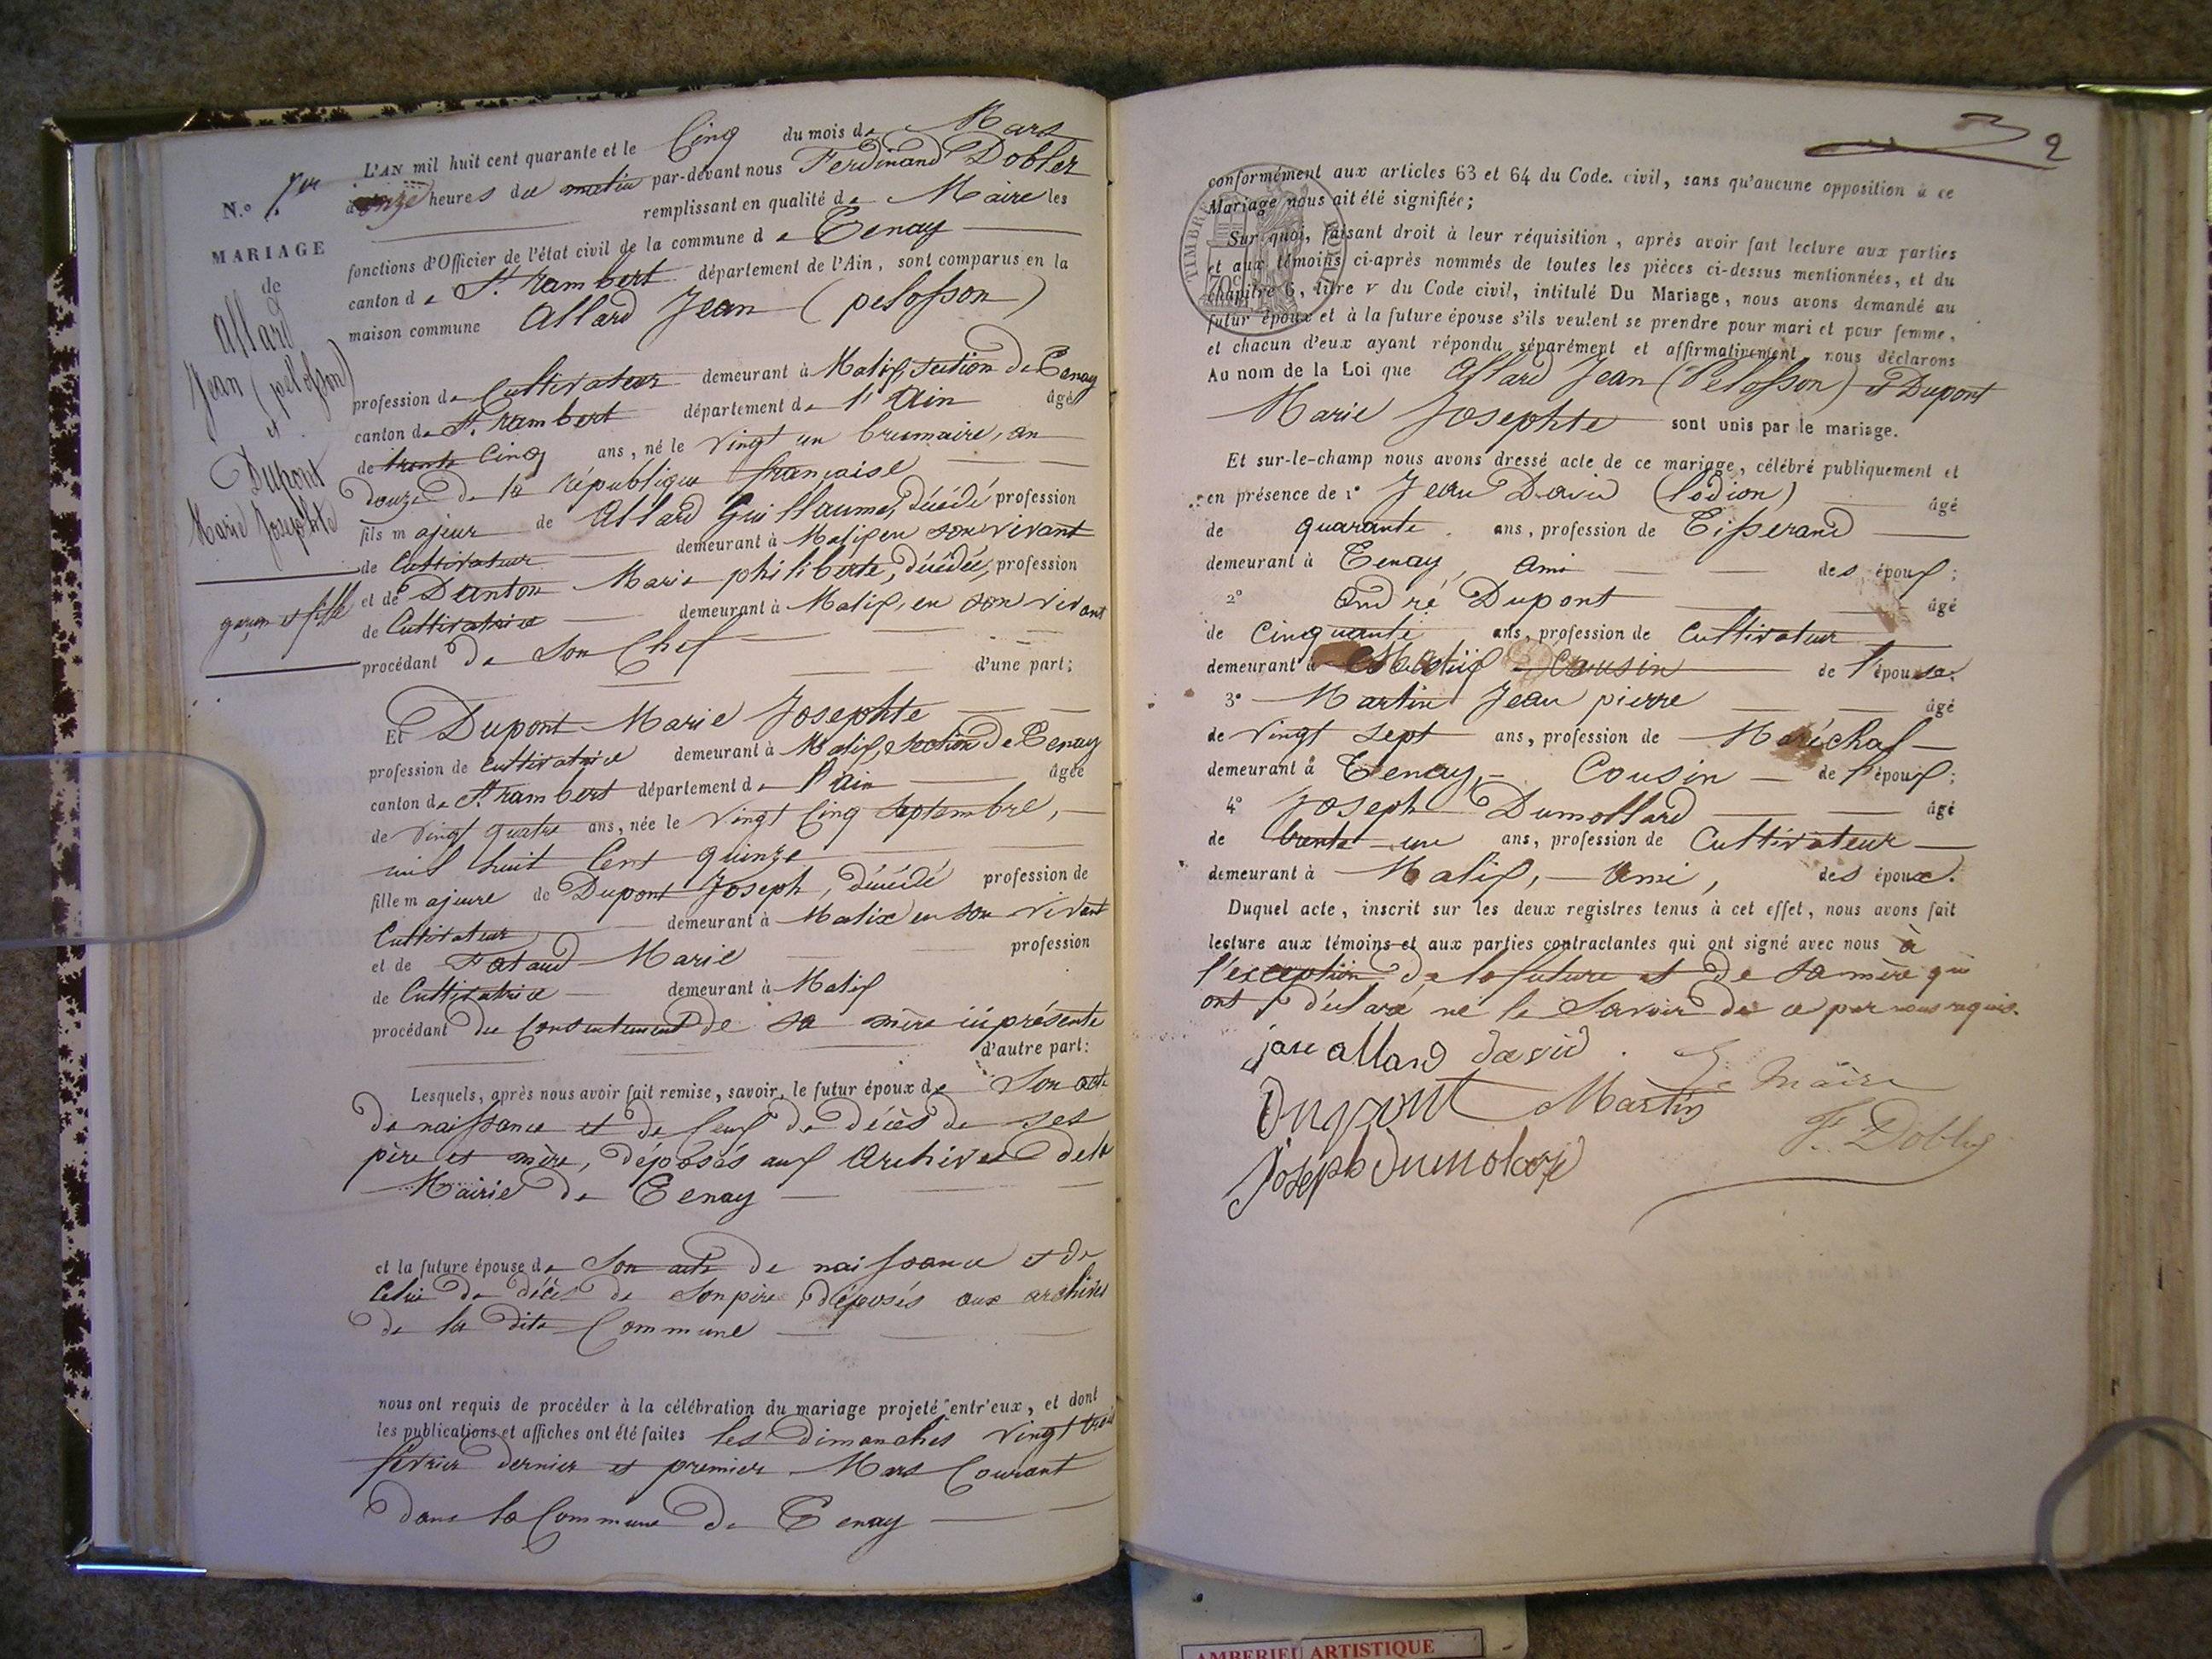 L'AN mil huit cent quarante et le Cinq du mois de Mars
à onze heures du matin par-devant nous Ferdinand Dobler
remplissant en qualité de Maire les
fonctions d'Officier de l'état civil de la commune de Tenay
canton de St. rambert département de l'Ain, sont comparus en la
maison commune Allard Jean (pelosson)
profession de Cultivateur demeurant à Malix, section de Tenay
canton de St. rambert département de l'Ain âgé
de trente cinq ans, né le vingt un brumaire, an
douze de la république française
fils majeur de Allard Guillaume, décédé profession
de Cultivateur demeurant à Malix en son vivant
et de Danton Marie philiberte, décédée, profession
de Cultivatrice demeurant à Malix, en son vivant
procédant de son Chef
d'une part;
N.° 1er
MARIAGE
de
Allard
Jean (pelosson)
et
Dupont
Marie Josephte
garçon et fille
Et Dupont Marie Josephte
profession de cultivatrice demeurant à Malix, section de Tenay
canton de St. rambert département de l'Ain âgée
de vingt quatre ans, née le vingt Cinq septembre,
mil huit Cent quinze
fille majeure de Dupont Joseph, décédé profession de
Cultivateur demeurant à Malix en son vivant
et de Marie profession
de Cultivatrice demeurant à Malix
procédant du Consentement de sa mère ici présente
d'autre part:
Lesquels, après nous avoir fait remise, savoir, le futur époux de Son acte
de naissance et de Ceux de décès de ses
père et mère, déposés aux Archives de la
Mairie de Tenay
et la future épouse de Son acte de naissance et de
Celui de décès de son père, déposés aux archives
de la dite Commune
nous ont requis de procéder à la célébration du mariage projeté entr'eux, et dont
les publications et affiches ont été faites les Dimanches vingt trois
février dernier et premier Mars Courant
dans la Commune de Tenay
2
conformément aux articles 63 et 64 du Code. civil, sans qu'aucune opposition à ce
Mariage nous ait été signifiée;
Sur quoi, faisant droit à leur réquisition, après avoir fait lecture aux parties
et aux témoins ci-après nommés de toutes les pièces ci-dessus mentionnées, et du
chapitre 6, titre V du Code civil, intitulé Du Mariage, nous avons demandé au
futur époux et à la future épouse s'ils veulent se prendre pour mari et pour femme,
et chacun d'eux ayant répondu séparément et affirmativement nous déclarons
Au nom de la Loi que Allard Jean (Pelosson) et Dupont
Marie Josephte sont unis par le mariage.
Et sur-le-champ nous avons dressé acte de ce mariage, célébré publiquement et
en présence de 1° Jean David (lodion) âgé
de quarante ans, profession de Tisserand
demeurant à Tenay, ami des époux;
2° André Dupont âgé
de Cinquante ans, profession de Cultivateur
demeurant à Malix Cousin de l'épouse;
3° Martin Jean pierre âgé
de vingt sept ans, profession de Maréchal
demeurant à Tenay, Cousin de l'époux;
4° Joseph Dumollard âgé
de trente un ans, profession de Cultivateur
demeurant à Malix, Ami, des époux.
Duquel acte, inscrit sur les deux registres tenus à cet effet, nous avons fait
lecture aux témoins et aux parties contractantes qui ont signé avec nous à
l'exception de la future et de sa mère qui
ont déclaré ne le savoir de ce par nous requis.
allard david Le Maire
Dupont Martin F. Dobler
Joseph dumolard
TIMBRE
70c
AMBERIEU ARTISTIQUE